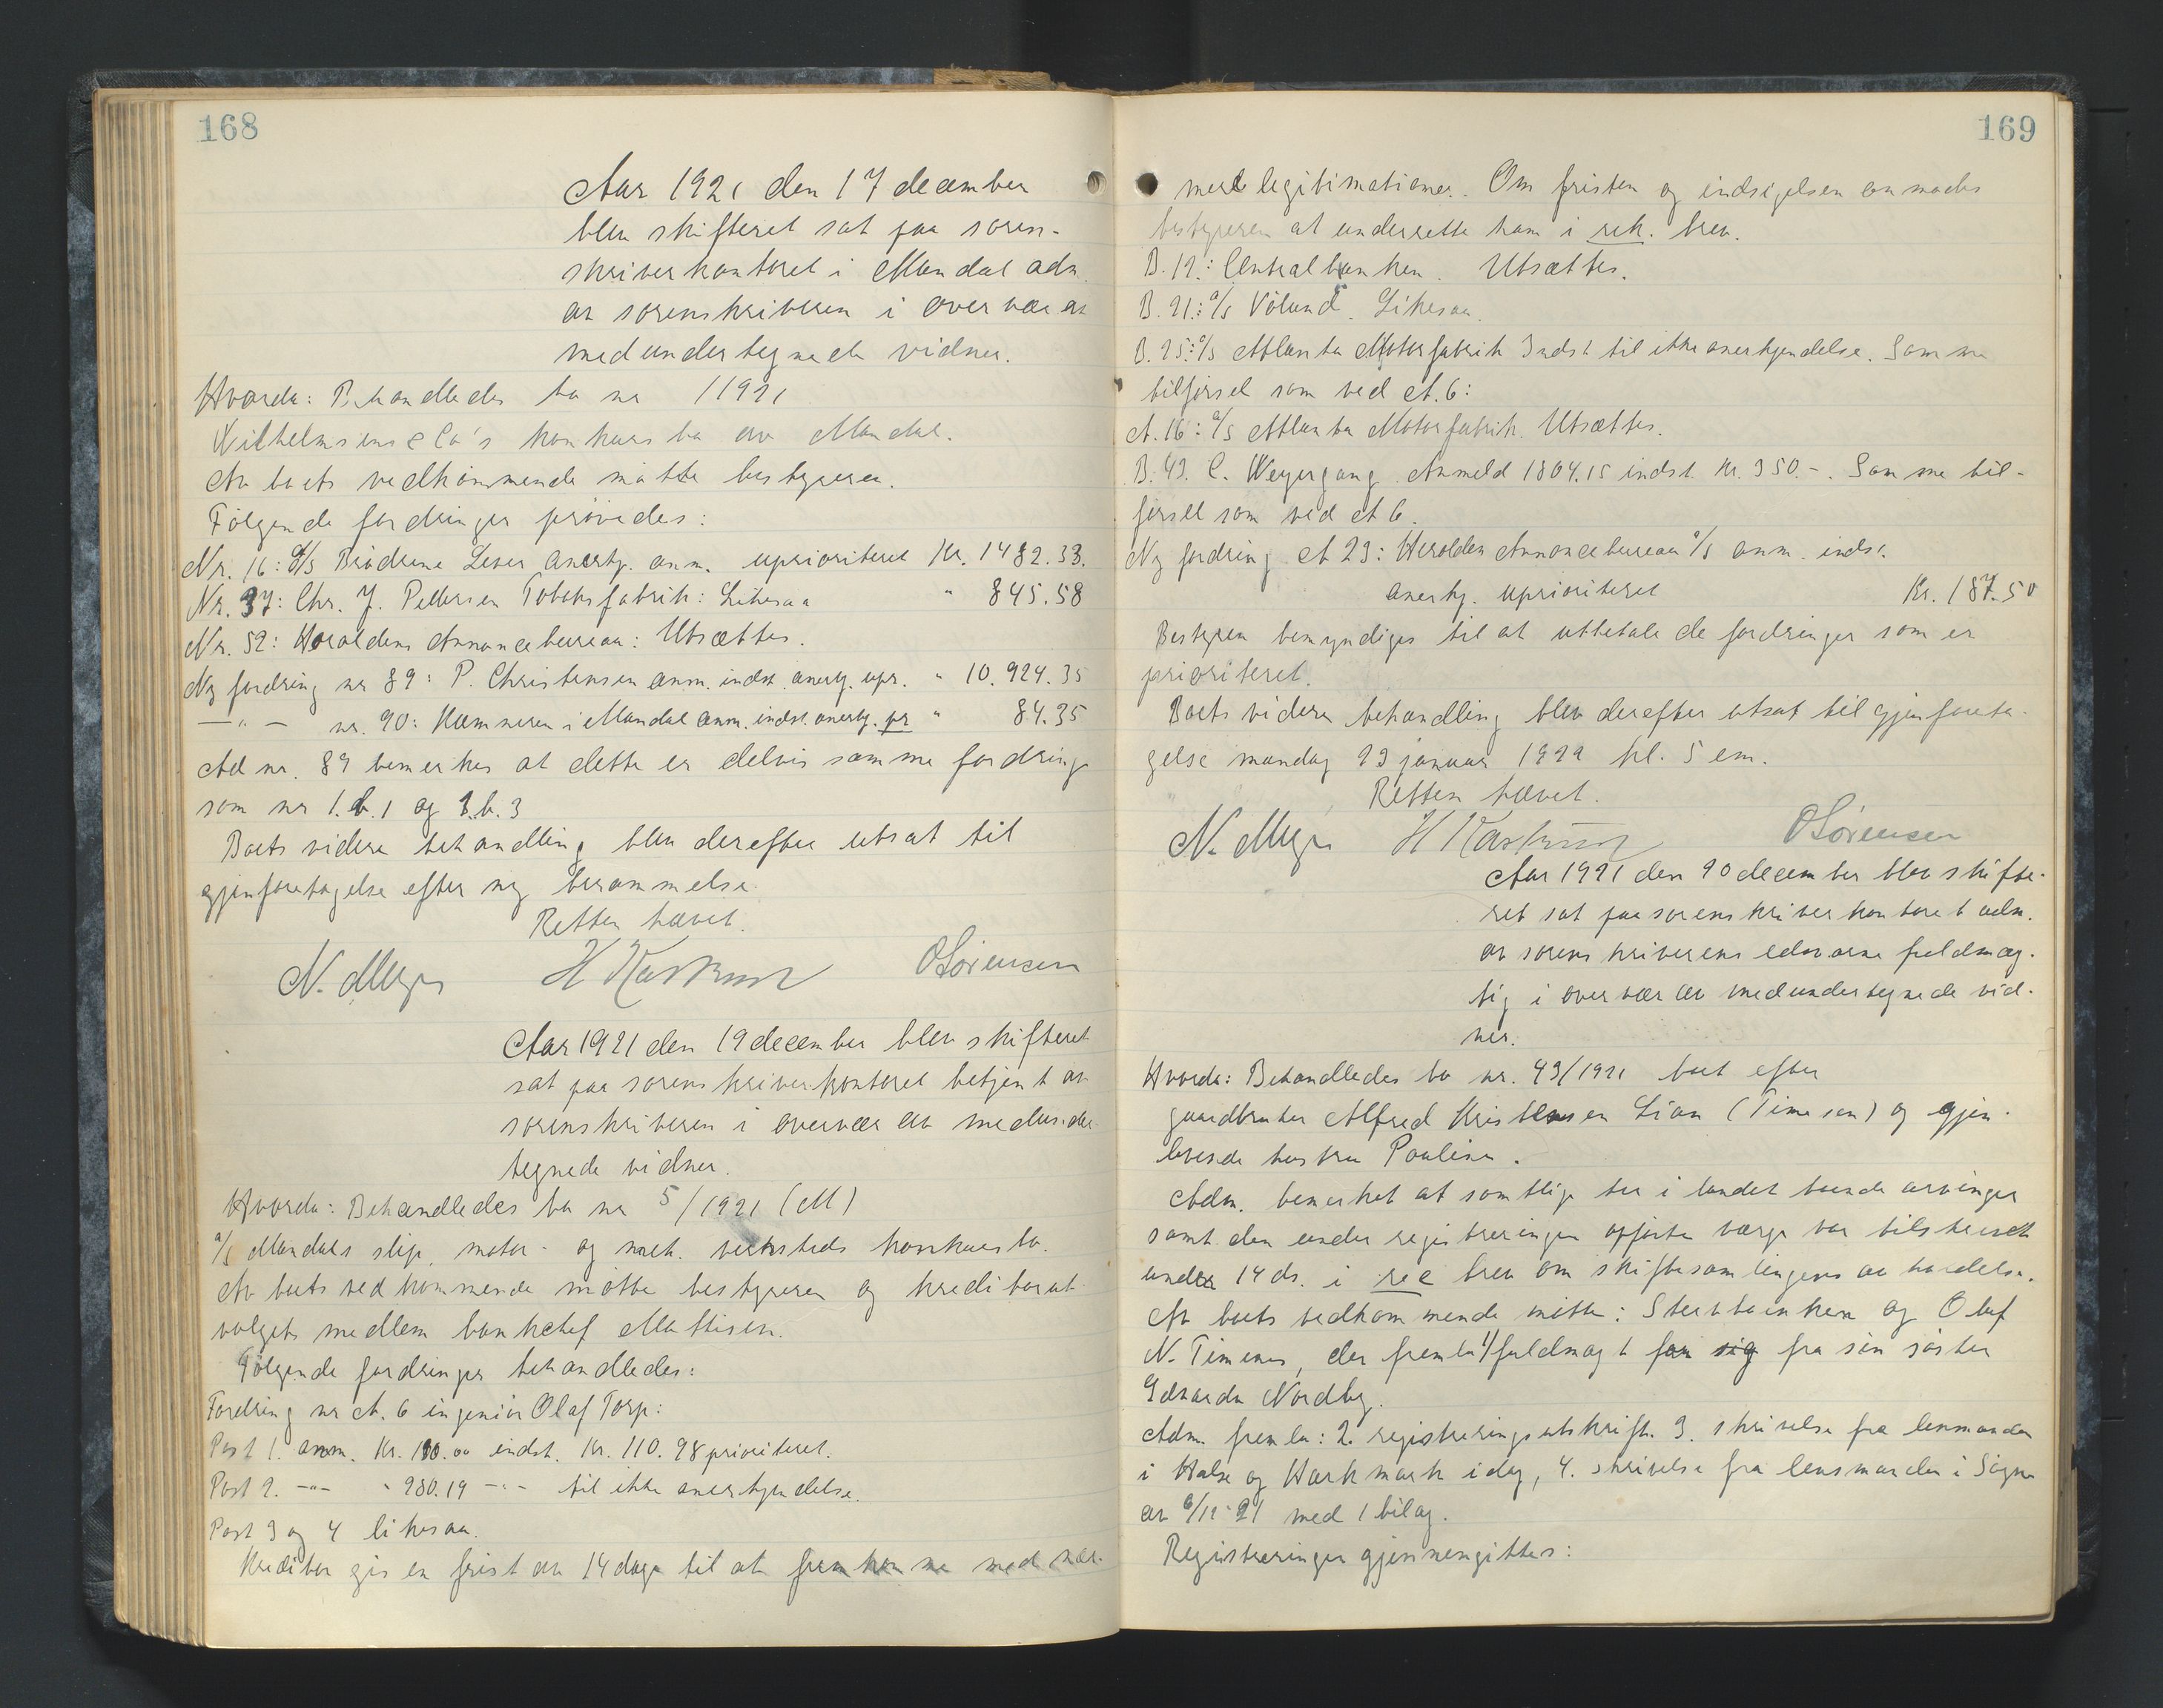 168
Aar 1921 den 17 december
blev skifteret sat paa soren-
skriverkontoret i Mandal adm.
av sorenskriveren i overvær av
medundertegnede vidner.
Hvorda: Behandledes bo nr 1 1921
Wilhelmsens & Co's konkursbo av Mandal.
Av boets vedkommende møtte bestyreren.
Følgende fordringer prøvedes:
Nr. 16: A/S Brødrene Lever anerkj. anm. uprioriteret Kr. 1482.33.
Nr. 37: Chr. J. Pettersen Tobaksfabrik: Likesaa " 845.58
Nr. 52: Heroldens Annoncebureau: Utsættes.
Ny fordring nr 89: P. Christensen anm. indst. anerkj. upr. " 10.924.35
—"— nr. 90: Kæmneren i Mandal anm. indst. anerkj. pr " 84.35
Ad nr. 89 bemerkes at dette er delvis samme fordring
som nr 1.b.1 og 1.b.3
Boets videre behandling blev derefter utsat til
gjenforetagelse efter ny berammelse.
Retten hævet.
N. H OSörensen
Aar 1921 den 19 december blev skifteret
sat paa sorenskriverkontoret betjent av
sorenskriveren i overvær av medunder-
tegnede vidner.
Hvorda: Behandledes bo nr 5/1921 (M)
A/S Mandals slip, motor- og mek. verksteds konkursbo.
Av boets vedkommende møtte bestyreren og kreditorut-
valgets medlem bankchef Mattisen.
Følgende fordringer behandledes:
Fordring nr A. 6 ingeniør Olaf Torp:
Post 1. anm. Kr. indst. Kr. 110.98 prioriteret.
Post 2. —"— " 230.19 —"— til ikke anerkjendelse.
Post 3 og 4 likesaa.
Kreditor gis en frist av 14 dage til at fremkomme med nær-
169
mere legitimationer. Om fristen og indsigelsen anmodes
bestyreren at underrette ham i rek. brev.
B. 12: Centralbanken. Utsættes.
B. 21: A/S Vølund. Likesaa.
B. 25: A/S Atlanta Motorfabrik Indst til ikke anerkjendelse. Samme
tilførsel som ved A. 6:
A. 16: A/S Atlanta Motorfabrik. Utsættes.
B. 43. C. Weyergang Anmeld 1804.15 indst. Kr. 350.-. Samme til-
førsel som ved A 6.
Ny fordring A 23: Herolden Annoncebureau A/S anm. indst.
anerkj. uprioriteret Kr. 187.50
Bestyren bemyndiges til at utbetale de fordringer som er
prioriteret.
Boets videre behandling blev derefter utsat til gjenforeta-
gelse mandag 23 januar 1922 kl. 5 em.
Retten hævet.
N. H OSörensen
Aar 1921 den 20 december blev skifte-
ret sat paa sorenskriverkontoret adm.
av sorenskriverens edsvorne fuldmæg-
tig i overvær av medundertegnede vid-
ner.
Hvorda: Behandledes bo nr. 43/1921 boet efter
gaardbruker Alfred Kristensen Lian (Timesen) og gjen-
levende hustru Pauline.
Adm. bemerket at samtlige her i landet boende arvinger
samt den under registreringen opførte værge var tilskrevet
under 14 ds. i rec brev om skiftesamlingens avholdelse.
Av boets vedkommende møtte: Sterbboenken og Olaf
N. Timenes, der fremla 1/ fuldmagt fra sin søster
Edvarda Nordby.
Adm. fremla: 2. registreringsutskrift. 3. skrivelse fra lensmanden
i Halse og Harkmark idag, 4. skrivelse fra lensmanden i Søgne
av 6/12-21 med 1 bilag.
Registreringen gjennemgittes: